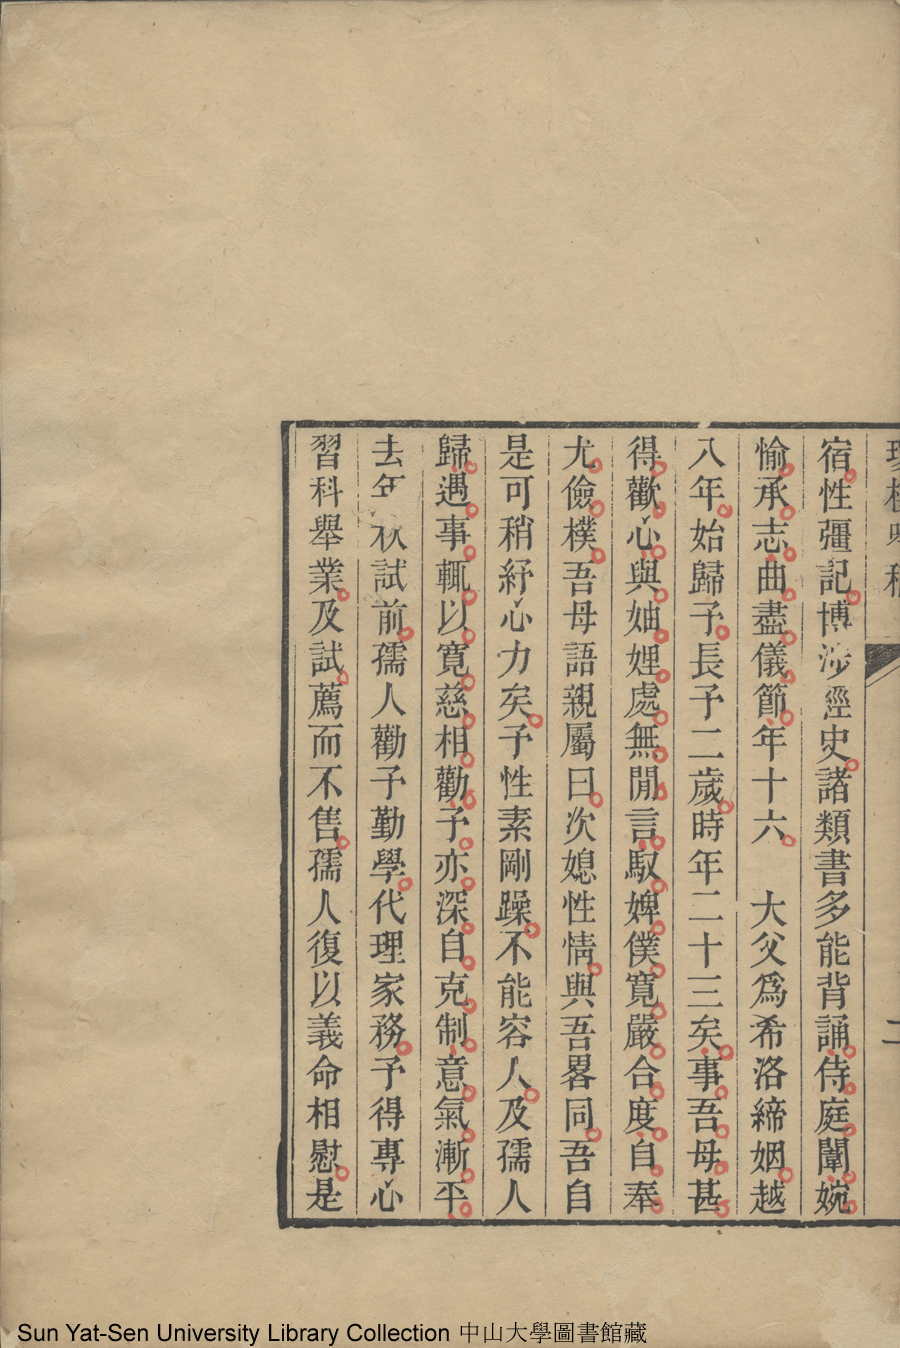 二
宿性彊記博涉經史諸類書多能背誦侍庭闈婉
愉承志曲盡儀節年十六　大父爲希洛締姻越
八年始歸予長予二歲時年二十三矣事吾母甚
得歡心與妯娌處無閒言馭婢僕寬嚴合度自奉
尤儉樸吾母語親屬曰次媳性情與吾畧同吾自
是可稍紓心力矣予性素剛躁不能容人及孺人
歸遇事輒以寬慈相勸予亦深自克制意氣漸平
去年秋試前孺人勸予勤學代理家務予得專心
習科舉業及試薦而不售孺人復以義命相慰是
Sun Yat-Sen University Library Collection 中山大學圖書館藏